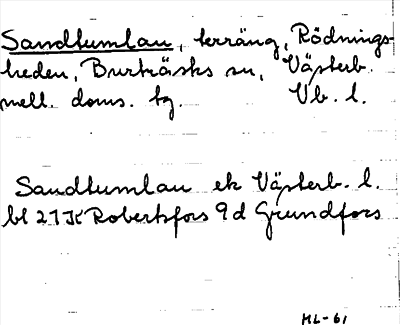 Sandtumlau, terräng, Rödnings-
heden, Burträsks sn, Västerb.
mell. doms. tg. Vb. l.
Sandtumlau ek Västerb. l.
bl 21K Robertsfors 9d Grundfors
ML-61